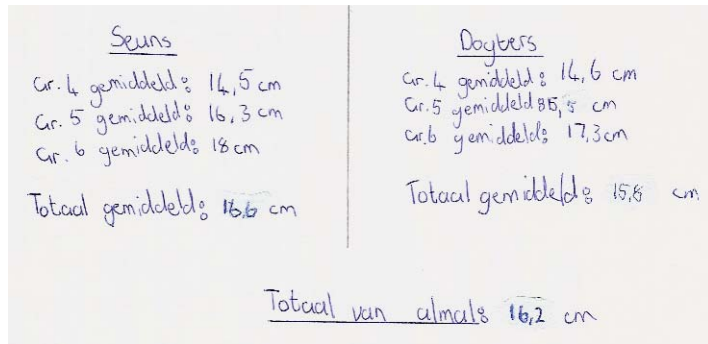 Seuns
Gr. 4 gemiddeld: 14,5 cm
Gr. 5 gemiddeld: 16,3 cm
Gr. 6 gemiddeld: 18 cm
Totaal gemiddeld: 16,6 cm
Dogters
Gr. 4 gemiddeld: 14,6 cm
Gr. 5 gemiddeld cm
Gr. 6 gemiddeld: 17,3 cm
Totaal gemiddeld: 15,8 cm
Totaal van almal: 16,2 cm